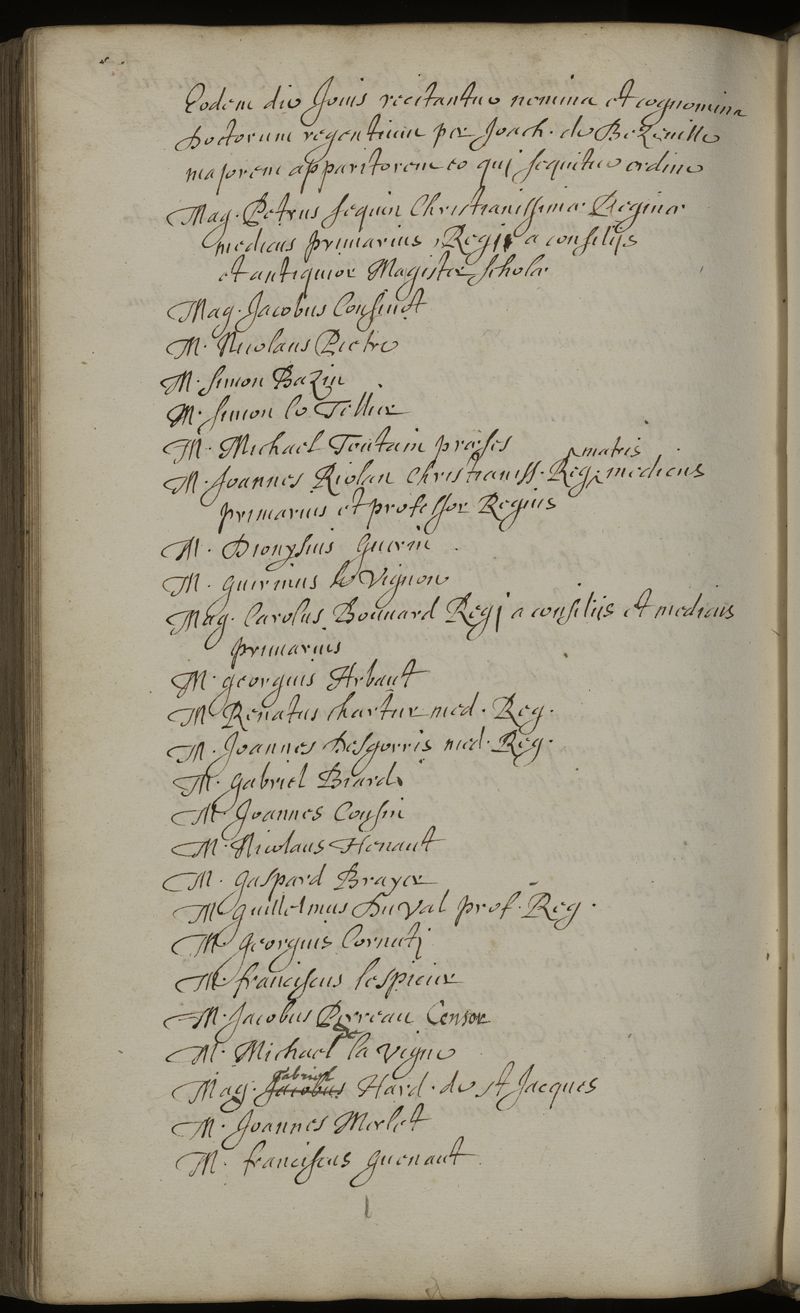 Eodem die Jovis recitantur nomina et cognomina
Doctorum regentium per Joach. de Bezenille
majorem apparitorem eo qui sequitur ordine
Mag. Petrus Seguin Christianissimæ Reginæ
medicus primarius, Regi a consiliis
et antiquior Magister scholæ
Mag. Jacobus Cousinot
M. Nicolaus Pietre
M. Simon Bazin
M. Simon le Tellier
M. Michael Toutain præses
matris
M. Joannes Riolan Christianiss. Reg. medicus
primarius et professor Regius
M. Dionysius Guerin
M. Quirinus le Vignon
Mag. Carolus Bouvard Regi a consiliis et medicus
primarius
M. Georgius Arbaut
M. Renatus Chartier med. Reg.
M. Joannes Desgorris med. Reg.
M. Gabriel Biard
M. Joannes Cousin
M. Nicolaus Henaut
M. Gaspard Brayer
M. Guillelmus Du Val prof. Reg.
M. Georgius Cornuti
M. Franciscus Lespicier
M. Jacobus Perreau Censor
M. Michael De la Vigne
gabriel
Mag. Jacobus Hard. de St Jacques
M. Joannes Merlet
M. Franciscus Guenaut